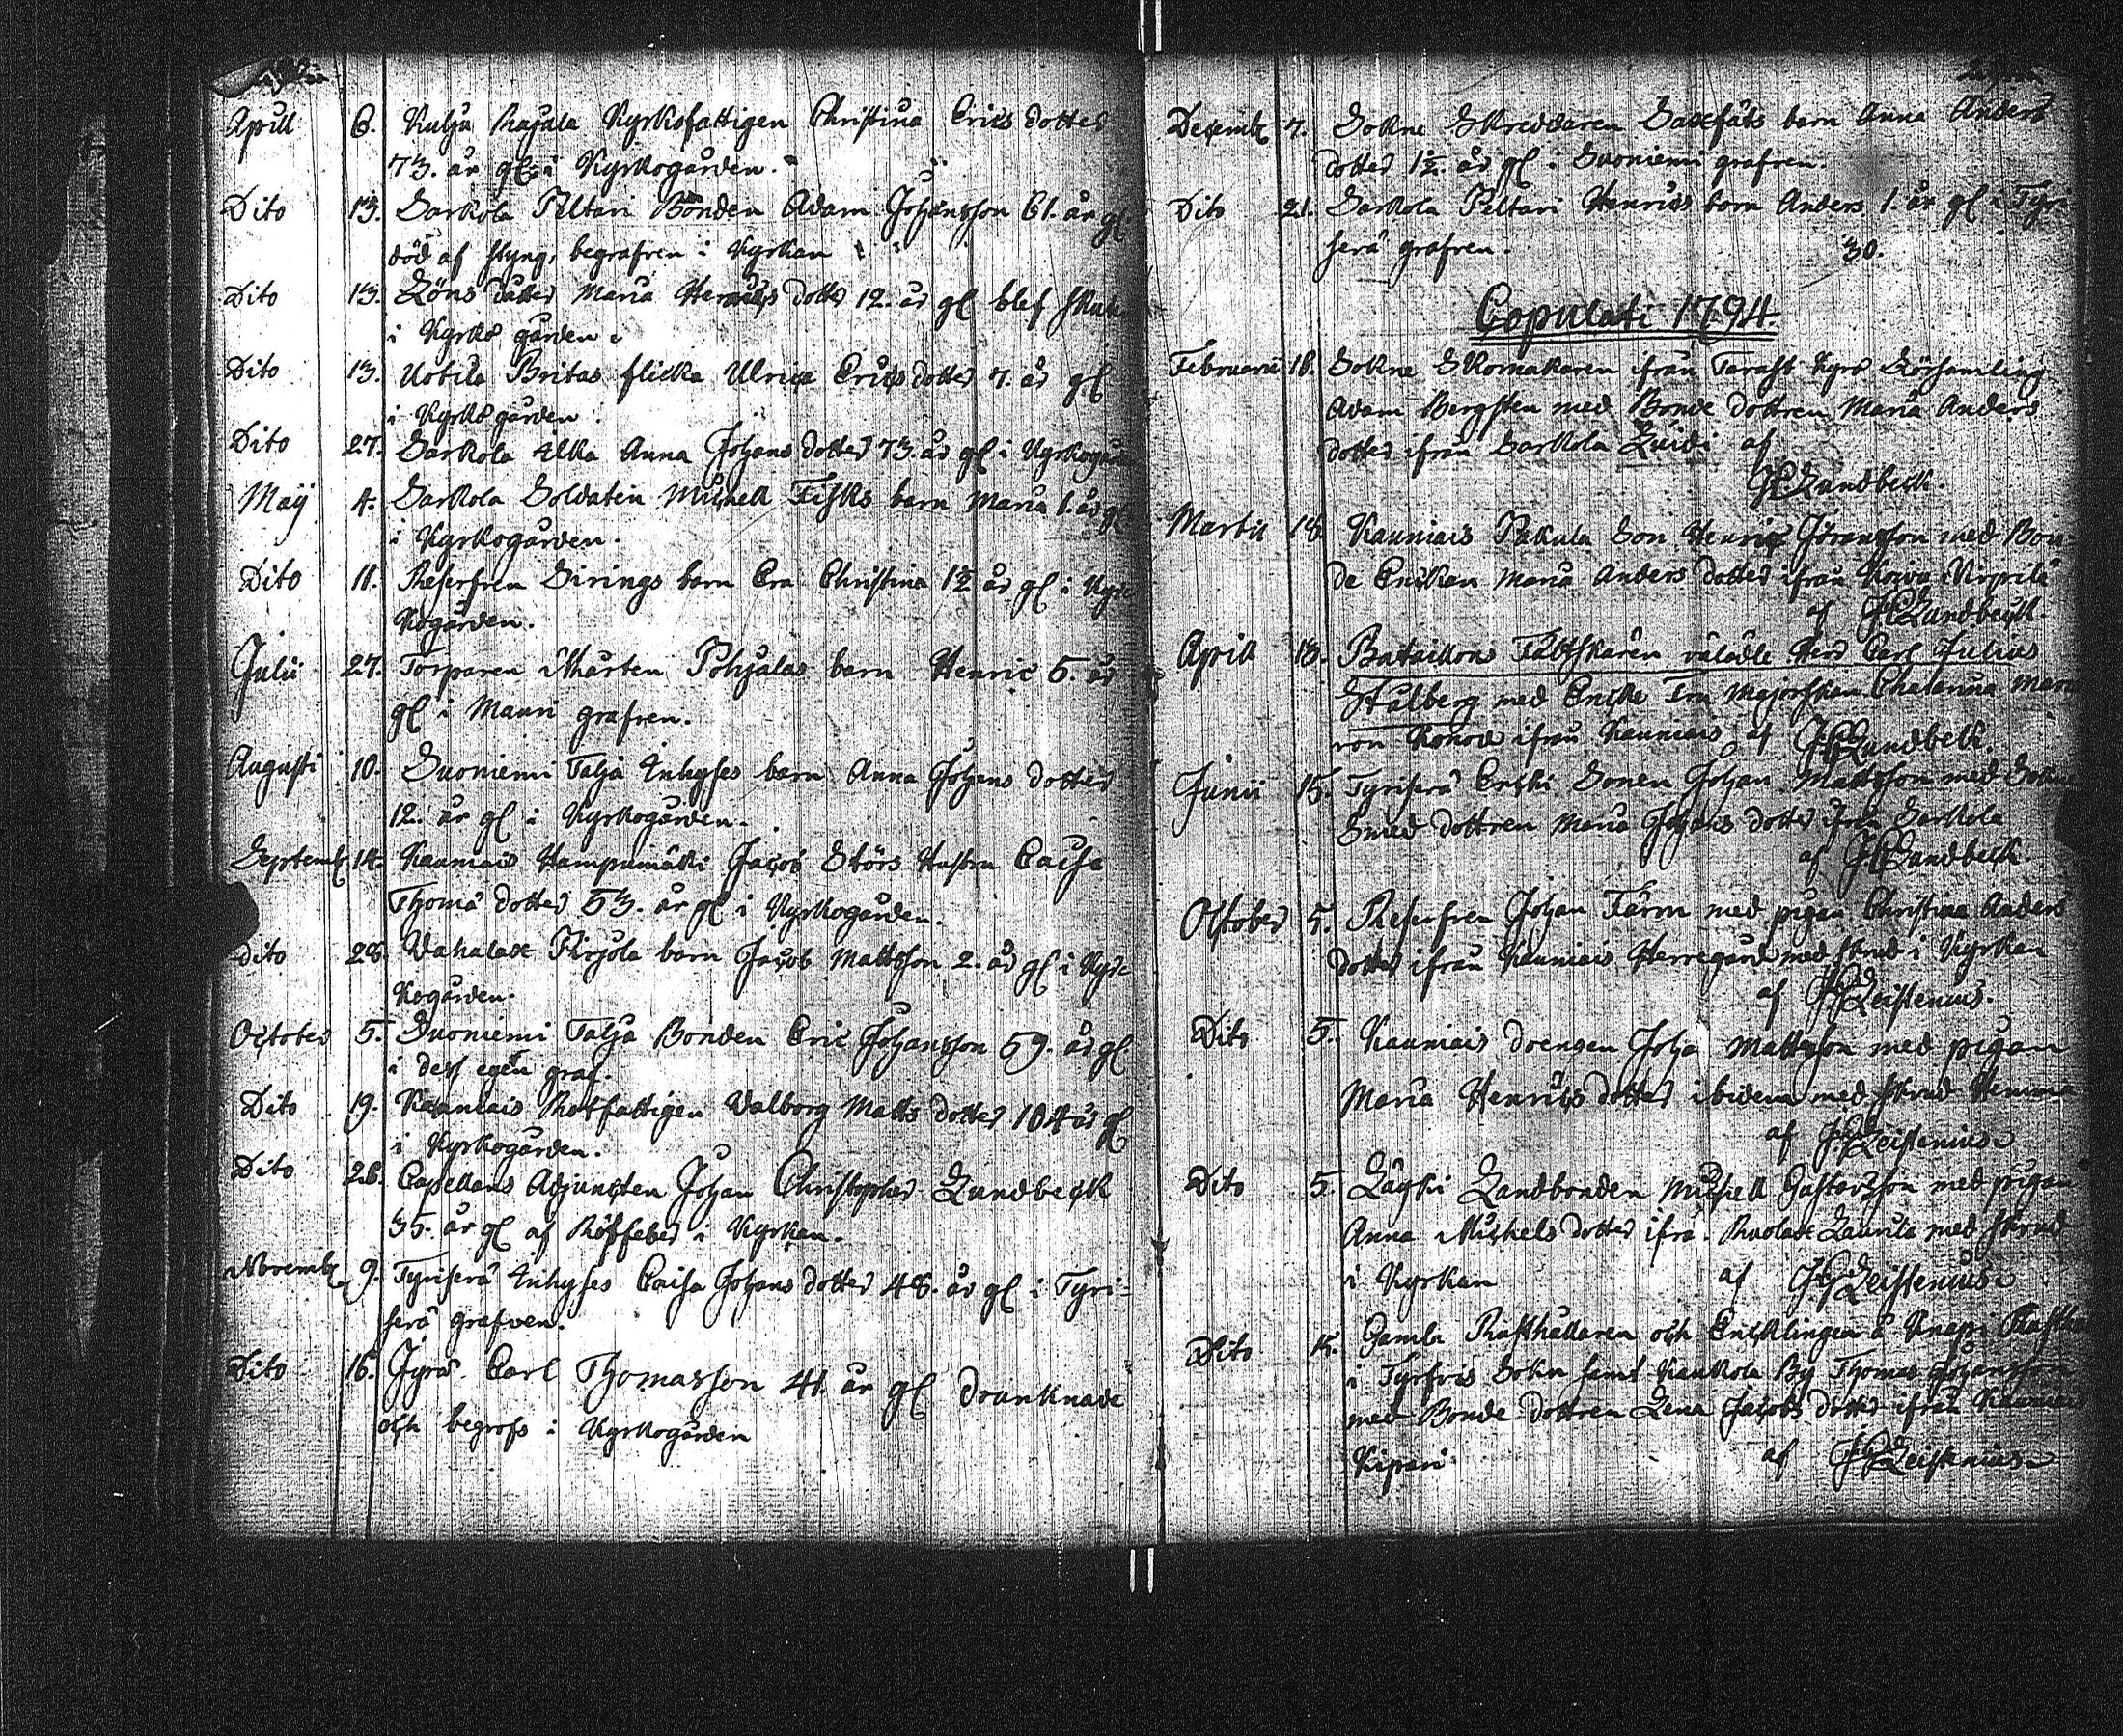 Aprill 6. Kulju Rajala Kyrkofattigen Christina Erics dotter
73. år gl: i Kyrkogården.
Dito 13. Sarkola Peltari Bonden Adam Johansson 61. år gl
död af styng, begrafven i Kyrkan
Dito 13. Löns dotter Maria Henrics dotter 12. år gl blef
i Kyrko gården
Dito 13. Uotila Britas flicka Ulrica Erics dotter 7. år gl
i Kyrko gården
Dito 27. Sarkola Anna Johans dotter 73. år gl i
May 4. Sarkola Soldaten Michell Fisks barn Maria 1. år gl
i Kyrkogården.
Dito 11. Reserfven Sirings barn Eva Christina 1½ år gl i Kyr-
kogården.
Julii 27. Torparen Mårten Pohjalas barn Henric 5. år
gl i Mauri grafven.
Augusti 10. Suoniemi Talja Inhyses barn Anna Johans dotter
12. år gl i Kyrkogården.
Septembr 14. Kauniais Hampumäki Jacob Störs Hustru Caisa
Thoma dotter 53. år gl i Kyrkogården.
Dito 28. Wahalax Pirjola barn Jacob Mattsson 2. år gl i Kyr-
kogården.
October 5. Suoniemi Talja Bonden Eric Johansson 59. år gl
i dess egen graf.
Dito 19. Kauniais Rotfattigen Valborg Matts dotter 104 år gl
i Kyrkogården.
Dito 26. Capellans Adjuncten Johan Christopher Lundbeck
35. år gl af Rötfeber i Kyrkan.
Novembr 9. Tyriserä Inhyses Caisa Johans dotter 48. år gl i Tyri-
serä grafven.
Dito 16. Jyrä Carl Thomasson 41. år gl drunknade
och begrofs i Kyrkogården
Decembr 7. Sokne Skreddaren barn Anna Anders
dotter 1½. år gl i Suoniemi grafven.
Dito 21. Sarkola Peltari Henrics barn Anders 1. år gl i Tyri-
serä grafven. 30.
Copulati 1794.
Februarii 18. Sokne Skomakaren ifrån Tavast Kyro Församling
Adam Bergsten med Bonde dottren Maria Anders
dotter ifrån Sarkola af
JCLundbeck.
Martii 18. Kauniais Pakula Son Henric Jöransson med Bon-
de Enckan Maria Anders dotter ifrån
af JCLundbeck.
Aprill 18. Bataillons Fältskären välädle Herr Carl Julius
Stålberg med Encke Fru Majorskan Chatarina
von Konow ifrån Kauniais af JCLundbeck.
Junii 15. Tyriserä Erkki Sonen Johan Mattsson med Sokne
Smed dottren Maria Johans dotter ifrån Sarkola
af JCLundbeck.
October 5. Reserfven Johan Färm med pigan Christina Anders
dotter ifrån Kauniais Herregård med skrud i Kyrkan
af Zeistenius.
Dito 5. Kauniais drengen Joha Mattsson med pigan
Maria Henrics dotter ibidem med skrud Hemma
af Zeistenius
Dito 5. Landbonden Michell Gustavsson med pigan
Anna Michels dotter ifrå Laurila med skrud
i Kyrkan af Zeistenius
Dito Gamla Rusthållaren och Encklingen å Knapi
i Tyrfvis Sokn samt Kaukola By Thomas Johansson
med Bonde dottren Lena Jacobs dotter ifrån Kauniais
Kipari af Zeistenius